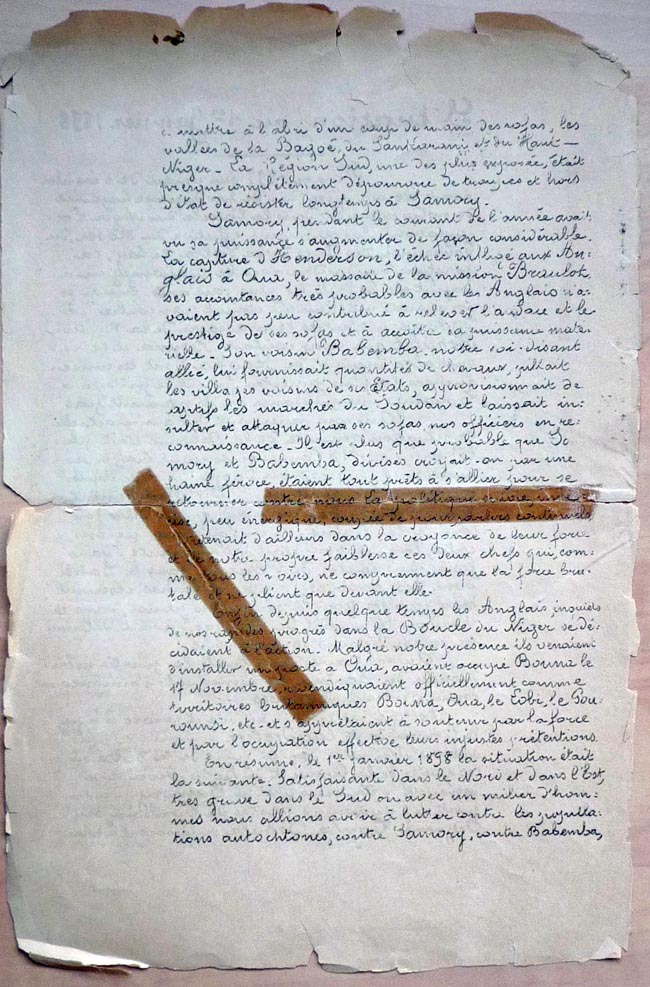 mettre à l'abri d'un coup de main des sofas, les
vallées de la Bagoé, du Sankarani et du Haut-
Niger - La Région Sud, une des plus exposée, était
presque complètement dépourvue de troupes et hors
d'état de résister longtemps à Samory.
Samory, pendant le courant de l'année avait
vu sa puissance s'augmenter de façon considérable.
La capture d'Henderson, l'échec infligé aux An-
glais à Oua, le massacre de la mission Braulot,
ses acointances très probables avec les Anglais n'a-
vaient pas peu contribué à relever l'audace et le
prestige de ses sofas et à accroître sa puissance maté-
rielle - Son voisin Babemba - notre soi-disant
allié, lui fournissait quantités de chevaux, pillait
les villages voisins de ses États, approvisionnait de
captifs les marchés du Soudan et laissait in-
sulter et attaquer par ses sofas, nos officiers en re-
connaissance - Il est plus que probable que Sa
mory et Babemba, divisés croyait-on par une
haine féroce, étaient tout prêts à s'allier pour se
retourner contre nous la politique suivie, indé-
cise, peu énergique, coupée de pourparlers continuels
d'ailleurs dans la croyance de leur force
et de notre propre faiblesse ces deux chefs qui, com-
me tous les noirs, ne comprennent que la force bru-
tale et ne plient que devant elle.
Enfin depuis quelque temps les Anglais inquiets
de nos rapides progrès dans la Boucle du Niger se dé-
cidaient à l'action. Malgré notre présence ils venaient
d'installer un poste à Oua, avaient occupé Bouna le
17 Novembre, revendiquaient officiellement comme
territoires britanniques Bouna, Oua, le Lobi, le Gou-
rounsi, etc - et s'apprêtaient à soutenir par la force
et par l'occupation effective leurs injustes prétentions.
En résumé, le 1er janvier 1898 la situation était
la suivante. Satisfaisante dans le Nord et dans l'Est,
très grave dans le Sud ou avec un millier d'hom-
mes nous allions avoir à lutter contre les popula-
tions autochtones, contre Samory, contre Babemba,